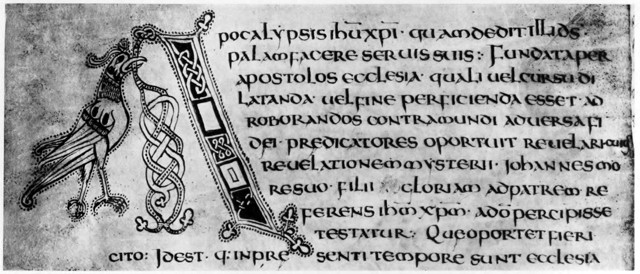 Apocalypsis ihu xpi · quam dedit illi ds ·
palam facere servis suis :· Fundata per
apostolos ecclesia · quali vel cursu di
latanda · vel fine perficienda esset · ad
roborandos contra mundi adversa fi
dei · predicatores oportuit revelari
revelationem mysterii · Johannes mo
re suo · filii · gloriam ad patrem re
ferens ihm xpm · a do percipisse
testatur :· Que oportet fieri
cito : Id est · q · in pre senti tempore sunt ecclesia